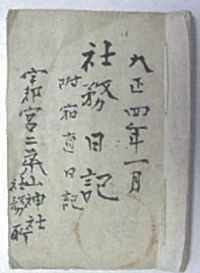 大正四年一月
社務日記
附宿直日記
宇都宮二荒山神社
社務所